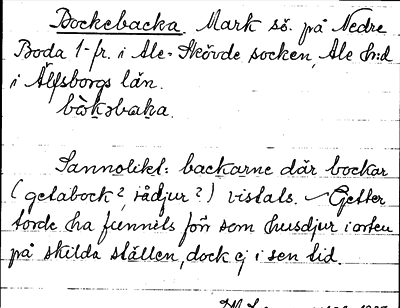 Bockebacka. Mark sö. på Nedre
Boda 1-fr. i Ale-Skövde socken, Ale hd
i Älfsborgs län.
bòkəbaka.
Sannolikt: backarne där bockar
(getabock?, rådjur?) vistats. Getter
torde ha funnits förr som husdjur i orten
på skilda ställen, dock ej i sen tid.